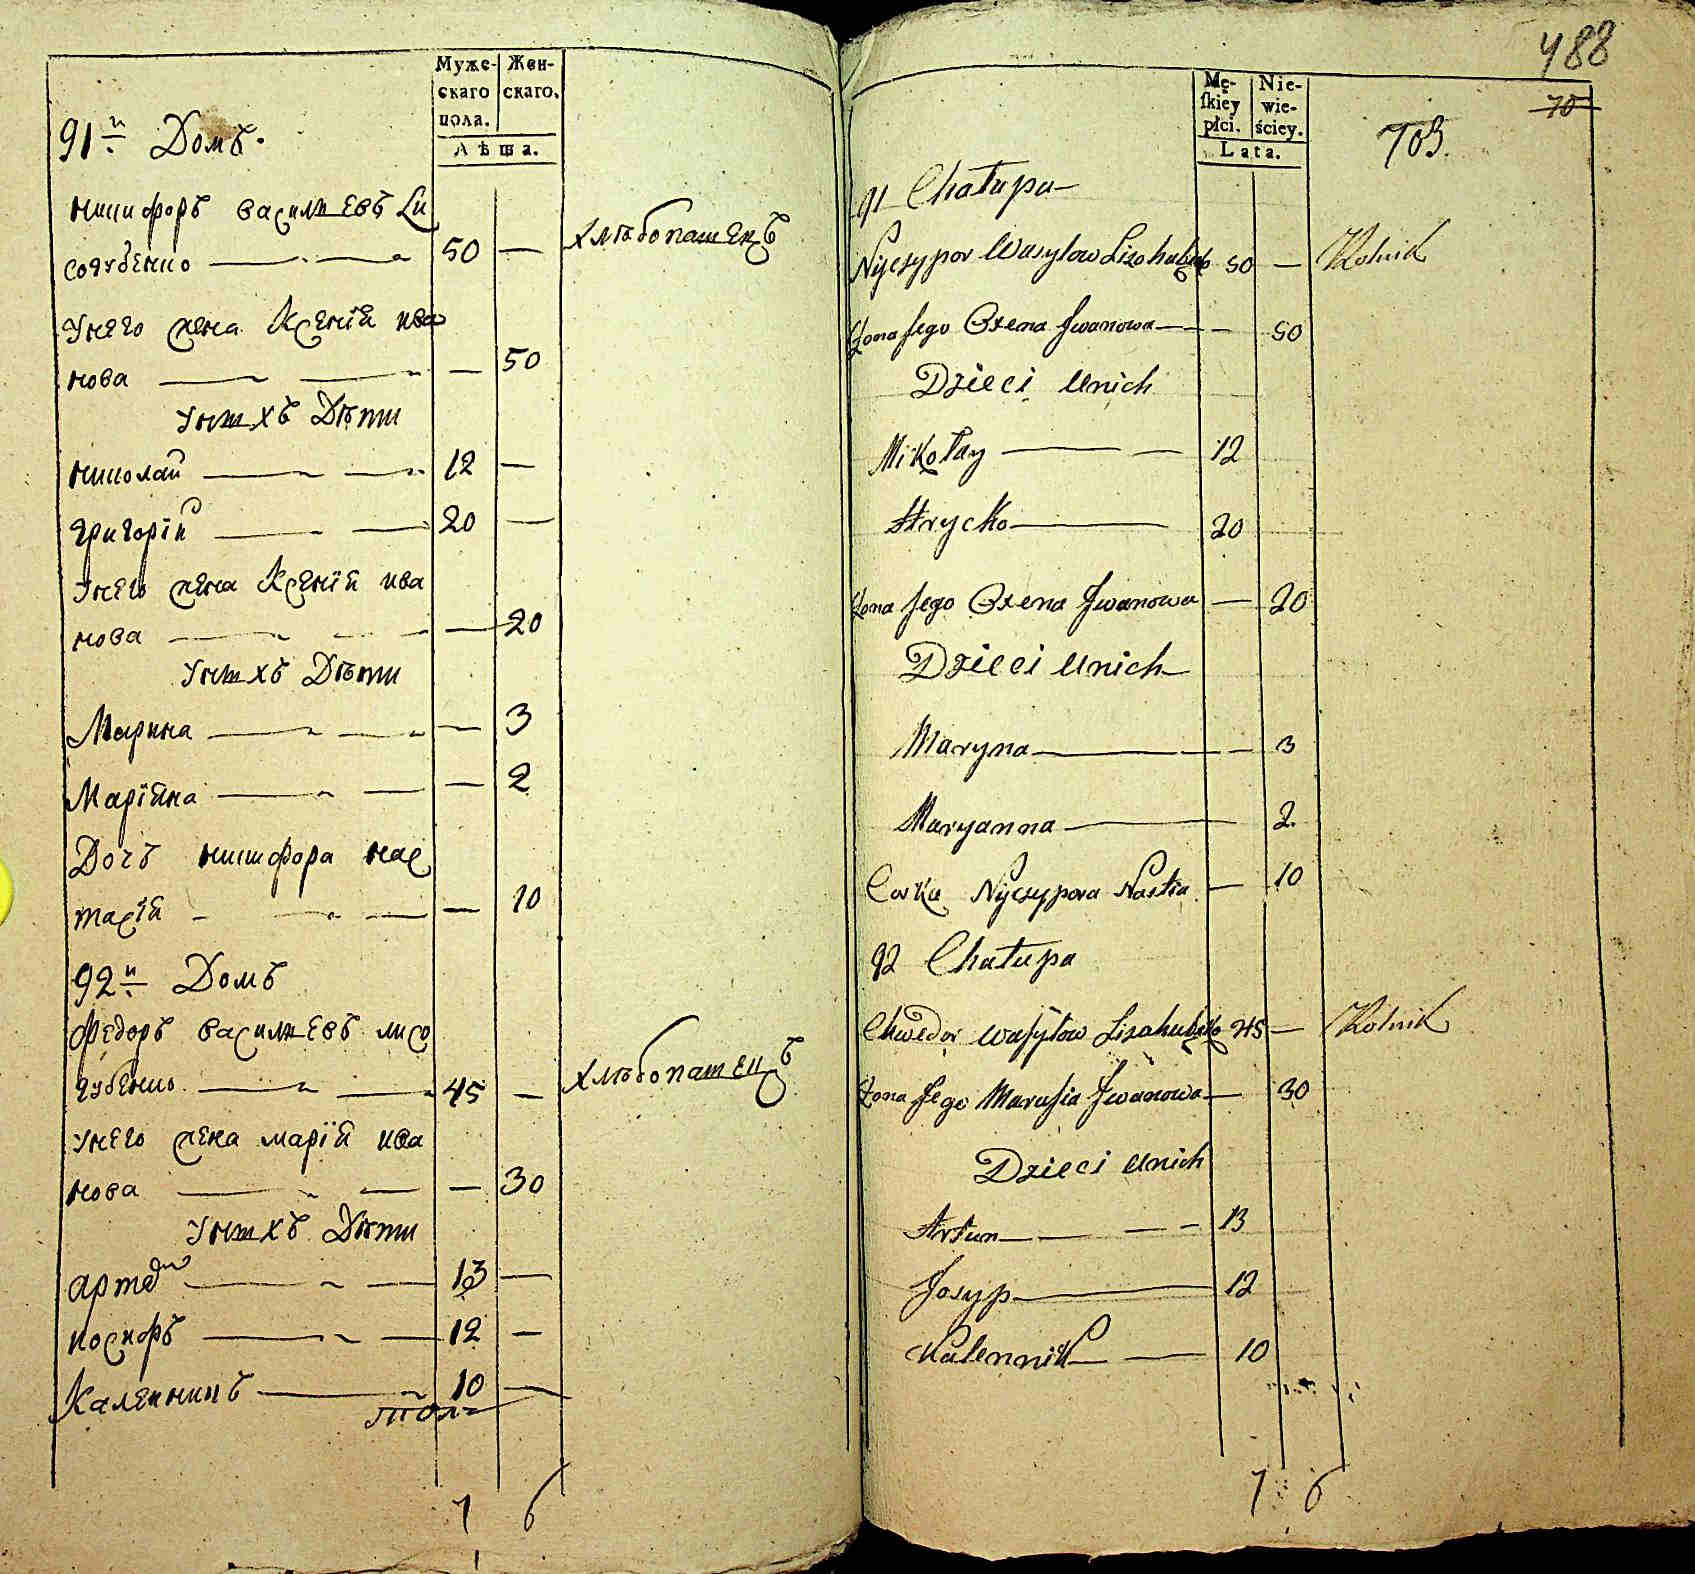 Муже-
скаго
пола.
Жен-
скаго.
Лѣта.
91й Домъ.
никифоръ василиевъ Ли
согубенко 50 — хлѣбопашецъ
Унего жена Ксенїя ива
нова — 50
Унихъ Дѣти
николай 12 —
григорїй 20 —
Унего жена Ксенїя ива
нова — 20
Унихъ Дѣти
Марина — 3
Марїяна — 2
Дочъ никифора нас
тасїя — 10
92й Домъ
федоръ василиевъ лисо
губенко 45 — хлѣбопашецъ
Унего жена марїя ива
нова — 30
Унихъ Дѣти
артем 13 —
иосифъ 12 —
Калеиникъ 10 —
7 6
488
70
703.
Mę-
ſkiey
płci.
Nie-
wie-
ściey.
Lata.
91 Chałupa
Nyczypor Wasylow Lizohubenko 50 — Rolnik
Żona Jego Oxena Jwanowa — 50
Dzieci Unich
Mikołay 12
Hrycko 20
Żona Jego Oxena Jwanowa — 20
Dzieci Unich
Maryna — 3
Maryanna 2
Corka Nyczypora Nastia — 10
92 Chałupa
Chwedor Waſylow Lizohubenko 45 — Rolnik
Żona Jego Maruſia Jwanowa — 30
Dzieci Unich
Artum 13
Josyp 12
Kalennik 10
7 6